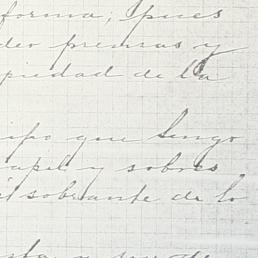 forma; pues
der prensas y
piedad de la
ipo que tengo
apel y sobres
el sobrante de lo